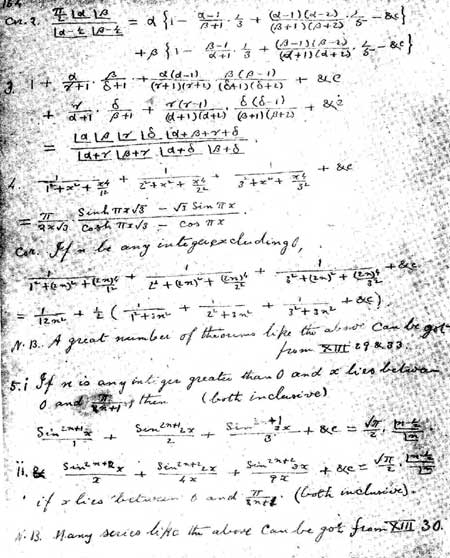 Cor. 2. π/2 |α |β / |α-½ |β-½ = α {1 - (α-1)/(β+1) · 1/3 + (α-1)(α-2)/(β+1)(β+2) · 1/5 - &c}
+ β {1 - (β-1)/(α+1) · 1/3 + (β-1)(β-2)/(α+1)(α+2) · 1/5 - &c}
3. 1 + α/(γ+1) · β/(δ+1) + α(α-1)/(γ+1)(γ+2) · β(β-1)/(δ+1)(δ+2) + &c
+ γ/(α+1) · δ/(β+1) + γ(γ-1)/(α+1)(α+2) · δ(δ-1)/(β+1)(β+2) + &c
= |α |β |γ |δ |α+β+γ+δ / |α+γ |β+γ |α+δ |β+δ
4. 1/(1²+x²+x⁴/1²) + 1/(2²+x²+x⁴/2²) + 1/(3²+x²+x⁴/3²) + &c
= π/(2x√3) · (Sinh πx√3 - √3 Sin πx)/(Cosh πx√3 - Cos πx)
Cor. If n be any integer excluding 0,
1/(1²+(2n)²+(2n)⁴/1²) + 1/(2²+(2n)²+(2n)⁴/2²) + 1/(3²+(2n)²+(2n)⁴/3²) + &c
= 1/12n² + ½ (1/(1²+3n²) + 1/(2²+3n²) + 1/(3²+3n²) + &c)
N.B. A great number of theorems like the above can be got
from XIII 29 & 33.
5. i If n is any integer greater than 0 and x lies between
0 and π/(2n+1) then (both inclusive)
Sin²ⁿ⁺¹x/1 + Sin²ⁿ⁺¹2x/2 + Sin²ⁿ⁺¹3x/3 + &c = √π/2 · |n-½ / |n
ii. Sin²ⁿ⁺²x/x + Sin²ⁿ⁺²2x/4x + Sin²ⁿ⁺²3x/9x + &c = √π/2 · |n-½ / |n
if x lies between 0 and π/(2n+2) (both inclusive).
N.B. Many series like the above can be got from XIII 30.